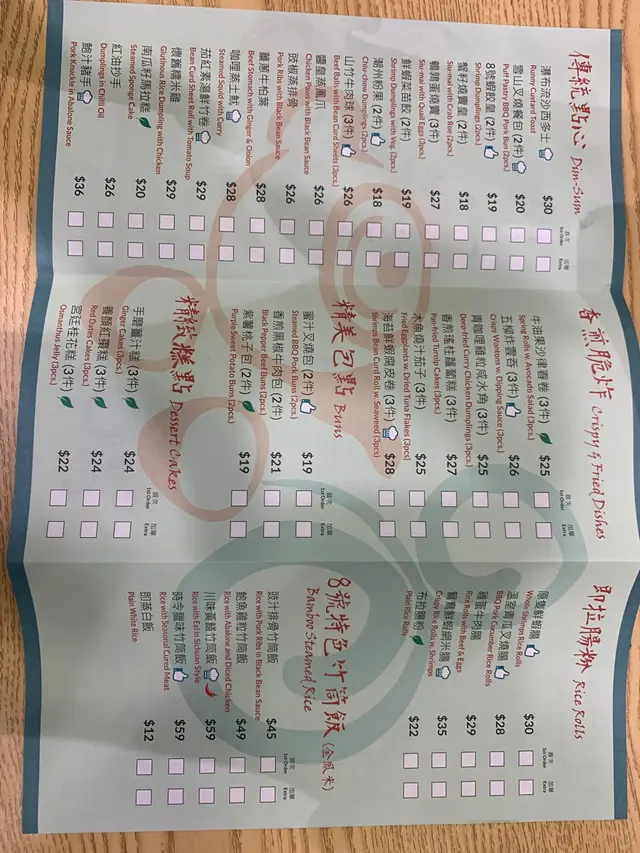 傳統點心 Dim-Sum
首次 加單
1st Order Extra
瀑布流沙西多士 $30
Runny Custard Toast
雪山叉燒餐包 (2件) $20
Puff Pastry BBQ Pork Bun (2pcs.)
8號蝦餃皇 (2件) $19
Shrimp Dumplings (2pcs.)
蟹籽燒賣皇 (2件) $18
Siu-mai with Crab Roe (2pcs.)
鵪鶉蛋燒賣 (3件) $27
Siu-mai with Quail Eggs (3pcs.)
鮮蝦菜苗餃 (2件) $19
Shrimp Dumplings with Veg. (2pcs.)
潮州粉果 (2件) $18
Chiu-chow Dumplings (2pcs.)
山竹牛肉球 (3件) $26
Beef Balls with Bean Curd Sheets (3pcs.)
醬皇蒸鳳爪 $26
Chicken Paws with Black Bean Sauce
豉椒蒸排骨 $26
Pork Ribs with Black Bean Sauce
薑蔥牛柏葉 $28
Beef Stomach with Ginger & Onion
咖喱蒸土魷 $28
Steamed Squid with Curry
茄紅素湯鮮竹卷 $29
Bean Curd Sheet Roll with Tomato Soup
懷舊糯米雞 $29
Glutinous Rice Dumpling with Chicken
南瓜籽馬拉糕 $20
Steamed Sponge Cake
紅油抄手 $26
Dumplings in Chilli Oil
鮑汁豬手 $36
Pork Knuckle in Abalone Sauce
香煎脆炸 Crispy & Fried Dishes
首次 加單
1st Order Extra
牛油果沙律春卷 (3件) $25
Spring Rolls w. Avocado Salad (3pcs.)
五柳炸雲吞 (3件) $26
Crispy Wontons w. Dipping Sauce (3pcs.)
青咖喱雞粒咸水角 (3件) $25
Deep-fried Curry Chicken Dumplings (3pcs.)
香煎瑤柱蘿蔔糕 (3件) $27
Pan-fried Turnip Cakes (3pcs.)
木魚燒汁茄子 (3件) $25
Fried Eggplants w. Dried Tuna Flakes (3pcs.)
海苔鮮蝦腐皮卷 (3件) $28
Shrimps Bean Curd Roll w. Seaweed (3pcs.)
精美包點 Buns
首次 加單
1st Order Extra
蜜汁叉燒包 (2件) $19
Steamed BBQ Pork Buns (2pcs.)
香煎黑椒牛肉包 (2件) $21
Black Peper Beef Buns (2pcs.)
紫薯桃子包 (2件) $19
Purple Sweet Potato Buns (2pcs.)
精緻糕點 Dessert Cakes
首次 加單
1st Order Extra
手磨薑汁糕 (3件) $24
Ginger Cakes (3pcs.)
養顏紅棗糕 (3件) $24
Red Dates Cakes (3pcs.)
宮廷桂花糕 (3件) $22
Osmanthus Jelly (3pcs.)
即拉腸粉 Rice Rolls
首次 加單
1st Order Extra
原隻鮮蝦腸 $30
Whole Shrimps Rice Rolls
溫室青瓜叉燒腸 $28
BBQ Pork Cucumber Rice Rolls
窩蛋牛肉腸 $29
Rice Rolls with Beef & Eggs
鴛鴦鮮蝦網米腸 $35
Crispy Rice Rolls w. Shrimps
布拉腸粉 $22
Plain Rice Rolls
8號特色竹筒飯 (金鳳米)
Bamboo Steamed Rice
首次 加單
1st Order Extra
豉汁排骨竹筒飯 $45
Rice with Pork Ribs in Black Bean Sauce
鮑魚雞竹筒飯 $49
Rice with Abalone and Diced Chicken
川味黃鱔竹筒飯 $59
Rice with Eel in Sichuan Style
時令臘味竹筒飯 $59
Rice with Seasonal Cured Meat
即蒸白飯 $12
Plain White Rice